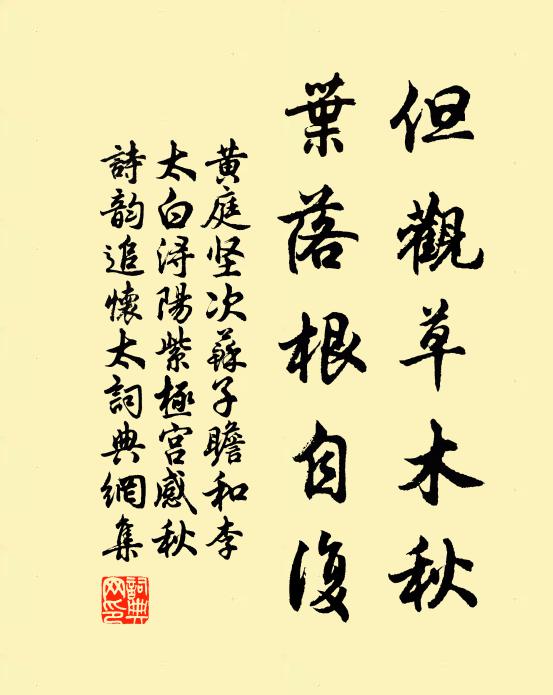 但觀草木秋
葉落根自復
黃庭坚次蘇子瞻和李
太白浔陽紫極宮感秋
詩韵追懷太詞典網集
詞典網印